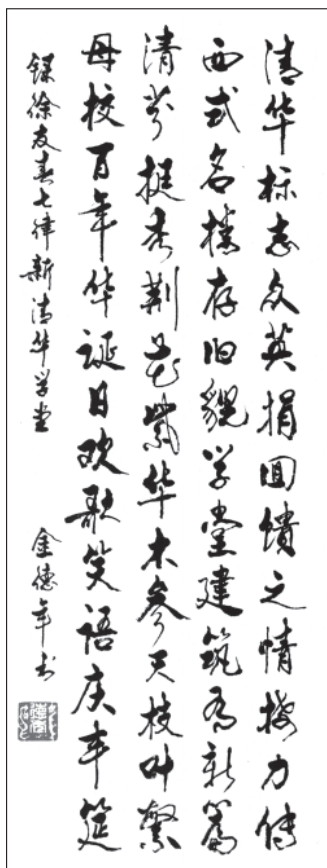 清华标志众英捐回馈之情接力传
西式名楼存旧貌学堂建筑为新篇
清芬挺秀荆花紫华木参天枝叶繁
母校百年华诞日欢歌笑语庆丰筵
录徐友春七律新清华学堂 金德年书